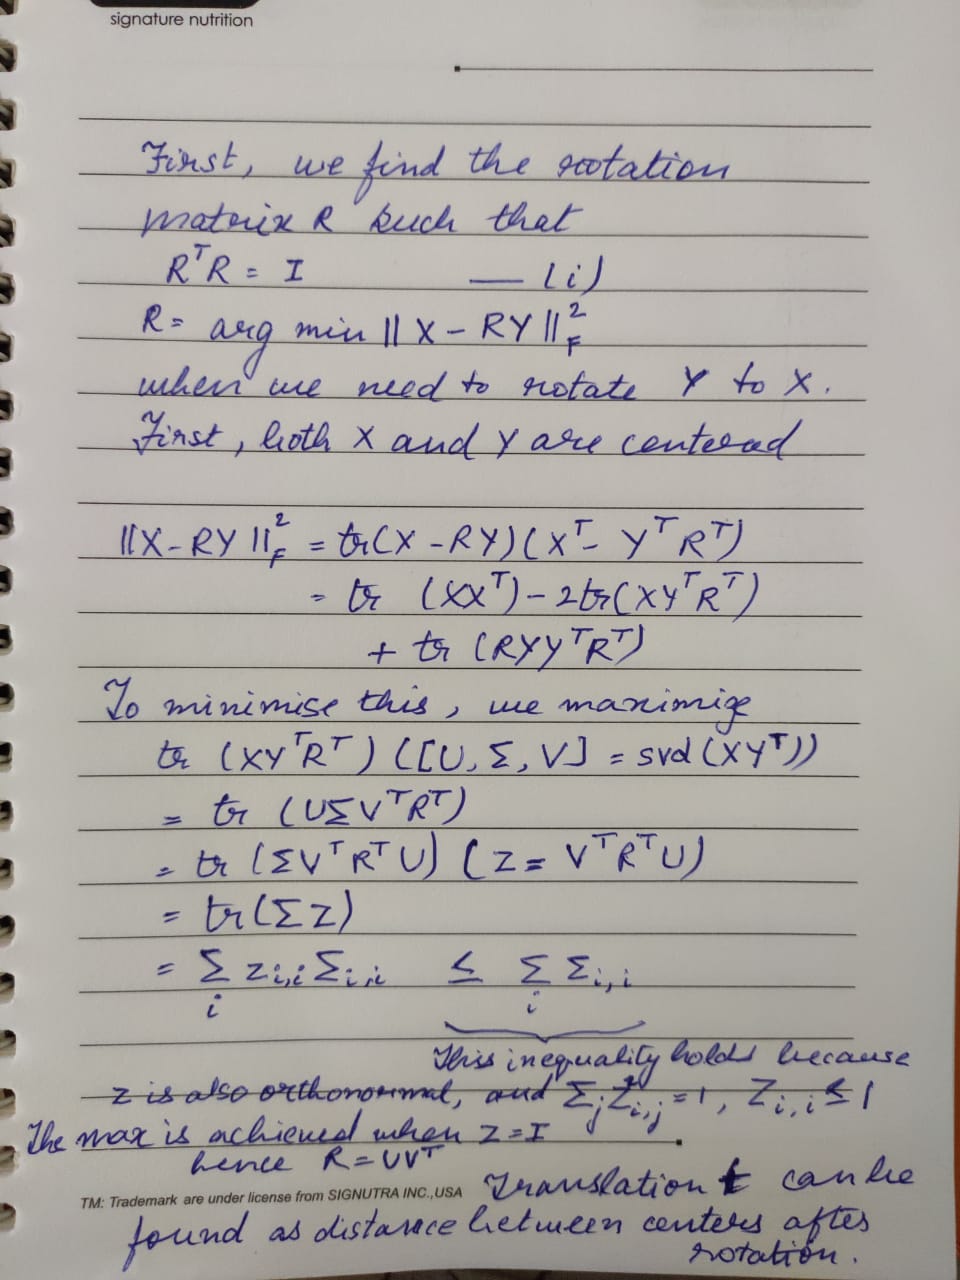 signature nutrition
First, we find the rotation
matrix R such that
RᵀR = I — (i)
R = arg min || X - RY ||²_F
when we need to rotate Y to X.
First, both X and Y are centered
||X-RY||²_F = tr(X-RY)(Xᵀ- YᵀRᵀ)
= tr (XXᵀ) - 2tr(XYᵀRᵀ)
+ tr (RYYᵀRᵀ)
To minimise this, we maximize
tr (XYᵀRᵀ) ([U, Σ, V] = svd(XYᵀ))
= tr (UΣVᵀRᵀ)
= tr (ΣVᵀRᵀU) (Z = VᵀRᵀU)
= tr(ΣZ)
= Σ_i z_{i,i} Σ_{i,i} ≤ Σ_i Σ_{i,i}
This inequality holds because
Z is also orthonormal, and Σ_j Z²_{i,j} = 1, Z_{i,i} ≤ 1
The max is achieved when Z=I
hence R = UVᵀ
TM: Trademark are under license from SIGNUTRA INC.,USA
Translation t can be
found as distance between centers after
rotation.